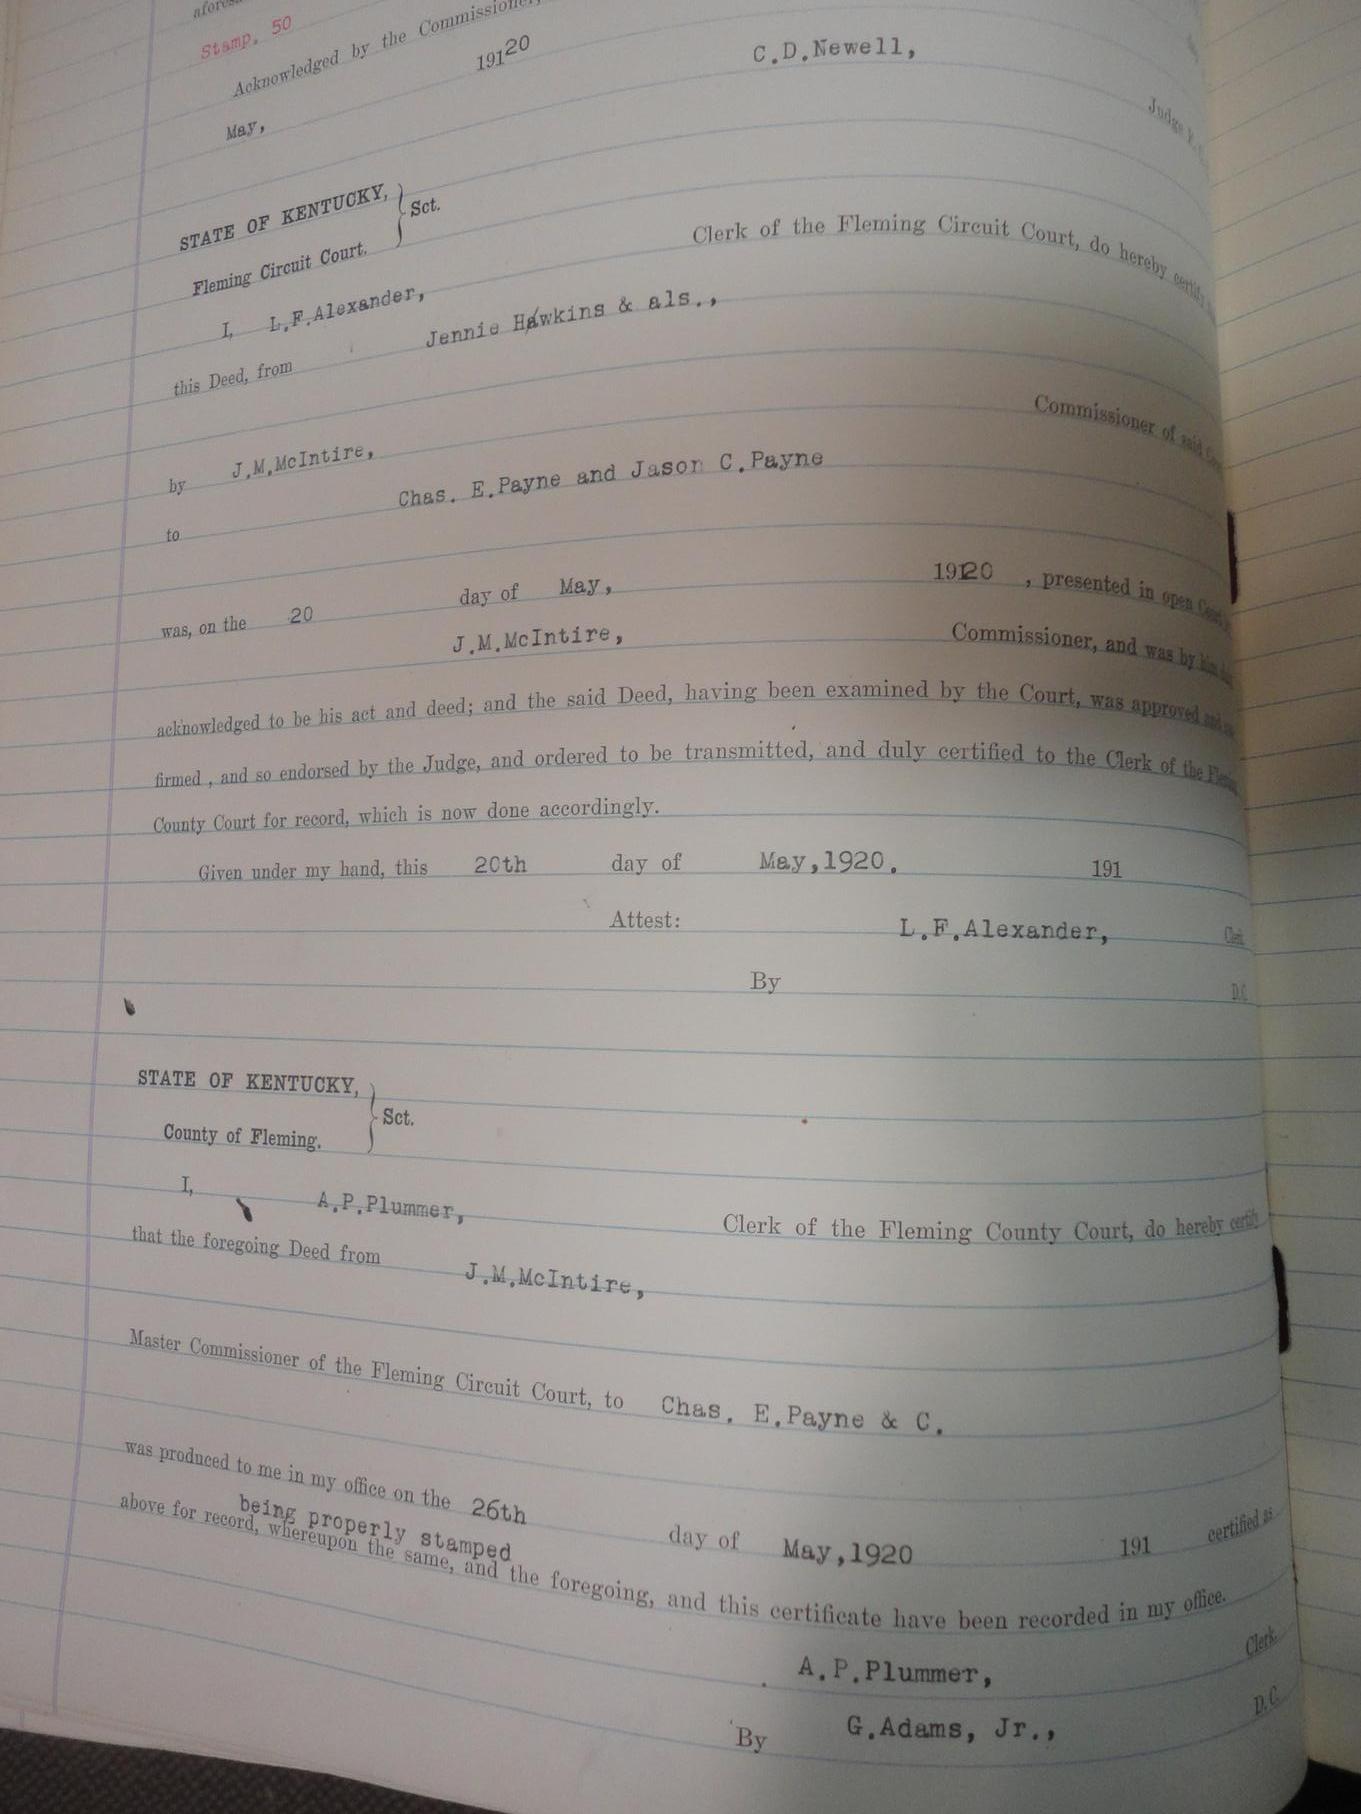 Stamp. 50
Acknowledged by the Commissioner,
May, 19120 C.D.Newell,
Judge
STATE OF KENTUCKY, Sct.
Fleming Circuit Court.
I, L.F.Alexander, Clerk of the Fleming Circuit Court, do hereby certify
this Deed, from Jennie Hawkins & als.,
by J.M.McIntire, Commissioner of said
to Chas. E.Payne and Jason C.Payne
was, on the 20 day of May, 19120 , presented in open
J.M.McIntire, Commissioner, and was by him
acknowledged to be his act and deed; and the said Deed, having been examined by the Court, was approved
firmed , and so endorsed by the Judge, and ordered to be transmitted, and duly certified to the Clerk of the
County Court for record, which is now done accordingly.
Given under my hand, this 20th day of May,1920. 191
Attest: L.F.Alexander, Clerk
By D.C.
STATE OF KENTUCKY, Sct.
County of Fleming.
I, A.P.Plummer, Clerk of the Fleming County Court, do hereby certify
that the foregoing Deed from J.M.McIntire,
Master Commissioner of the Fleming Circuit Court, to Chas. E.Payne & C.
was produced to me in my office on the 26th day of May,1920 191 certified as
being properly stamped
above for record, whereupon the same, and the foregoing, and this certificate have been recorded in my office.
A.P.Plummer, Clerk.
By G.Adams, Jr., D.C.